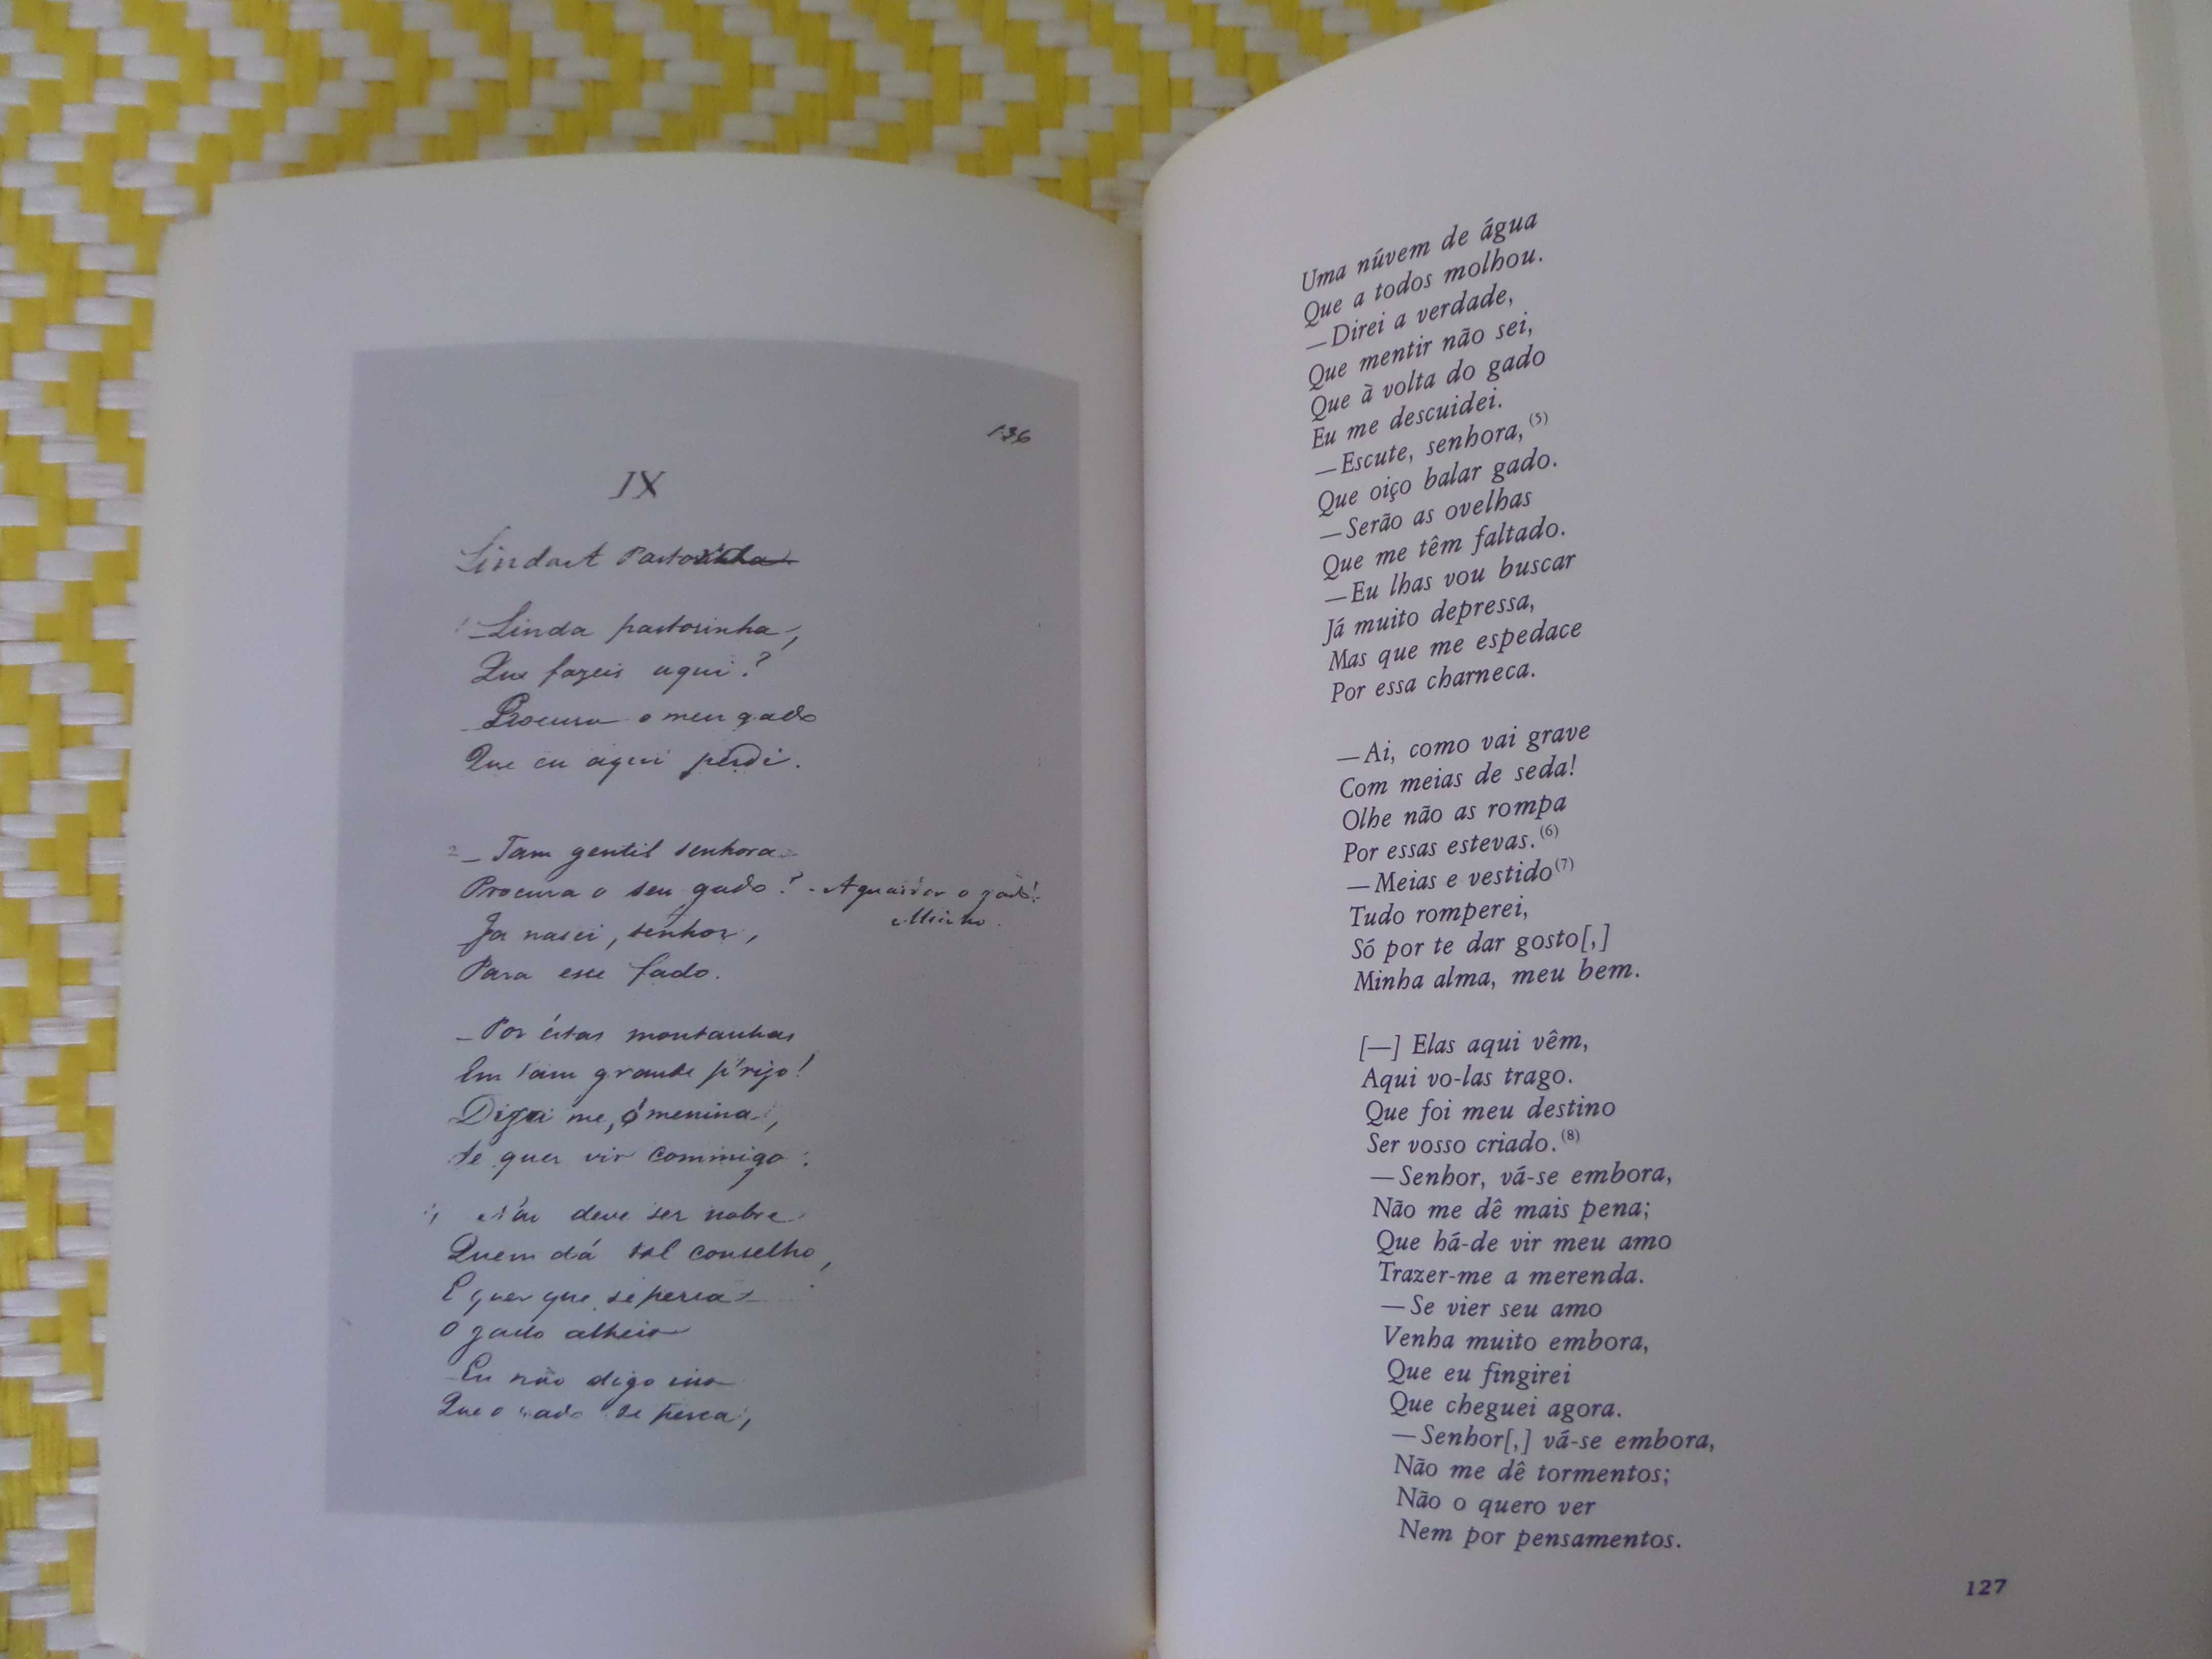 136
IX
Linda Pastorinha
Linda pastorinha,
Que fazeis aqui?
Procuro o meu gado
Que eu aqui perdi.
2 - Tam gentil senhora
Procura o seu gado? - A guardar o gado!
Minho.
Ja nasci, senhor,
Para esse fado.
- Por éstas montanhas
Em tam grande p'rigo!
Diga me, ó menina,
Se quer vir commigo.
Não deve ser nobre
Quem dá tal conselho,
E quer que se perca
O gado alheio
Eu não digo isso
Que o gado se perca,
Uma núvem de água
Que a todos molhou.
—Direi a verdade,
Que mentir não sei,
Que à volta do gado
Eu me descuidei.
—Escute, senhora, (5)
Que oiço balar gado.
—Serão as ovelhas
Que me têm faltado.
—Eu lhas vou buscar
Já muito depressa,
Mas que me espedace
Por essa charneca.
—Ai, como vai grave
Com meias de seda!
Olhe não as rompa
Por essas estevas. (6)
—Meias e vestido (7)
Tudo romperei,
Só por te dar gosto[,]
Minha alma, meu bem.
[—] Elas aqui vêm,
Aqui vo-las trago.
Que foi meu destino
Ser vosso criado. (8)
—Senhor, vá-se embora,
Não me dê mais pena;
Que há-de vir meu amo
Trazer-me a merenda.
—Se vier seu amo
Venha muito embora,
Que eu fingirei
Que cheguei agora.
—Senhor[,] vá-se embora,
Não me dê tormentos;
Não o quero ver
Nem por pensamentos.
127